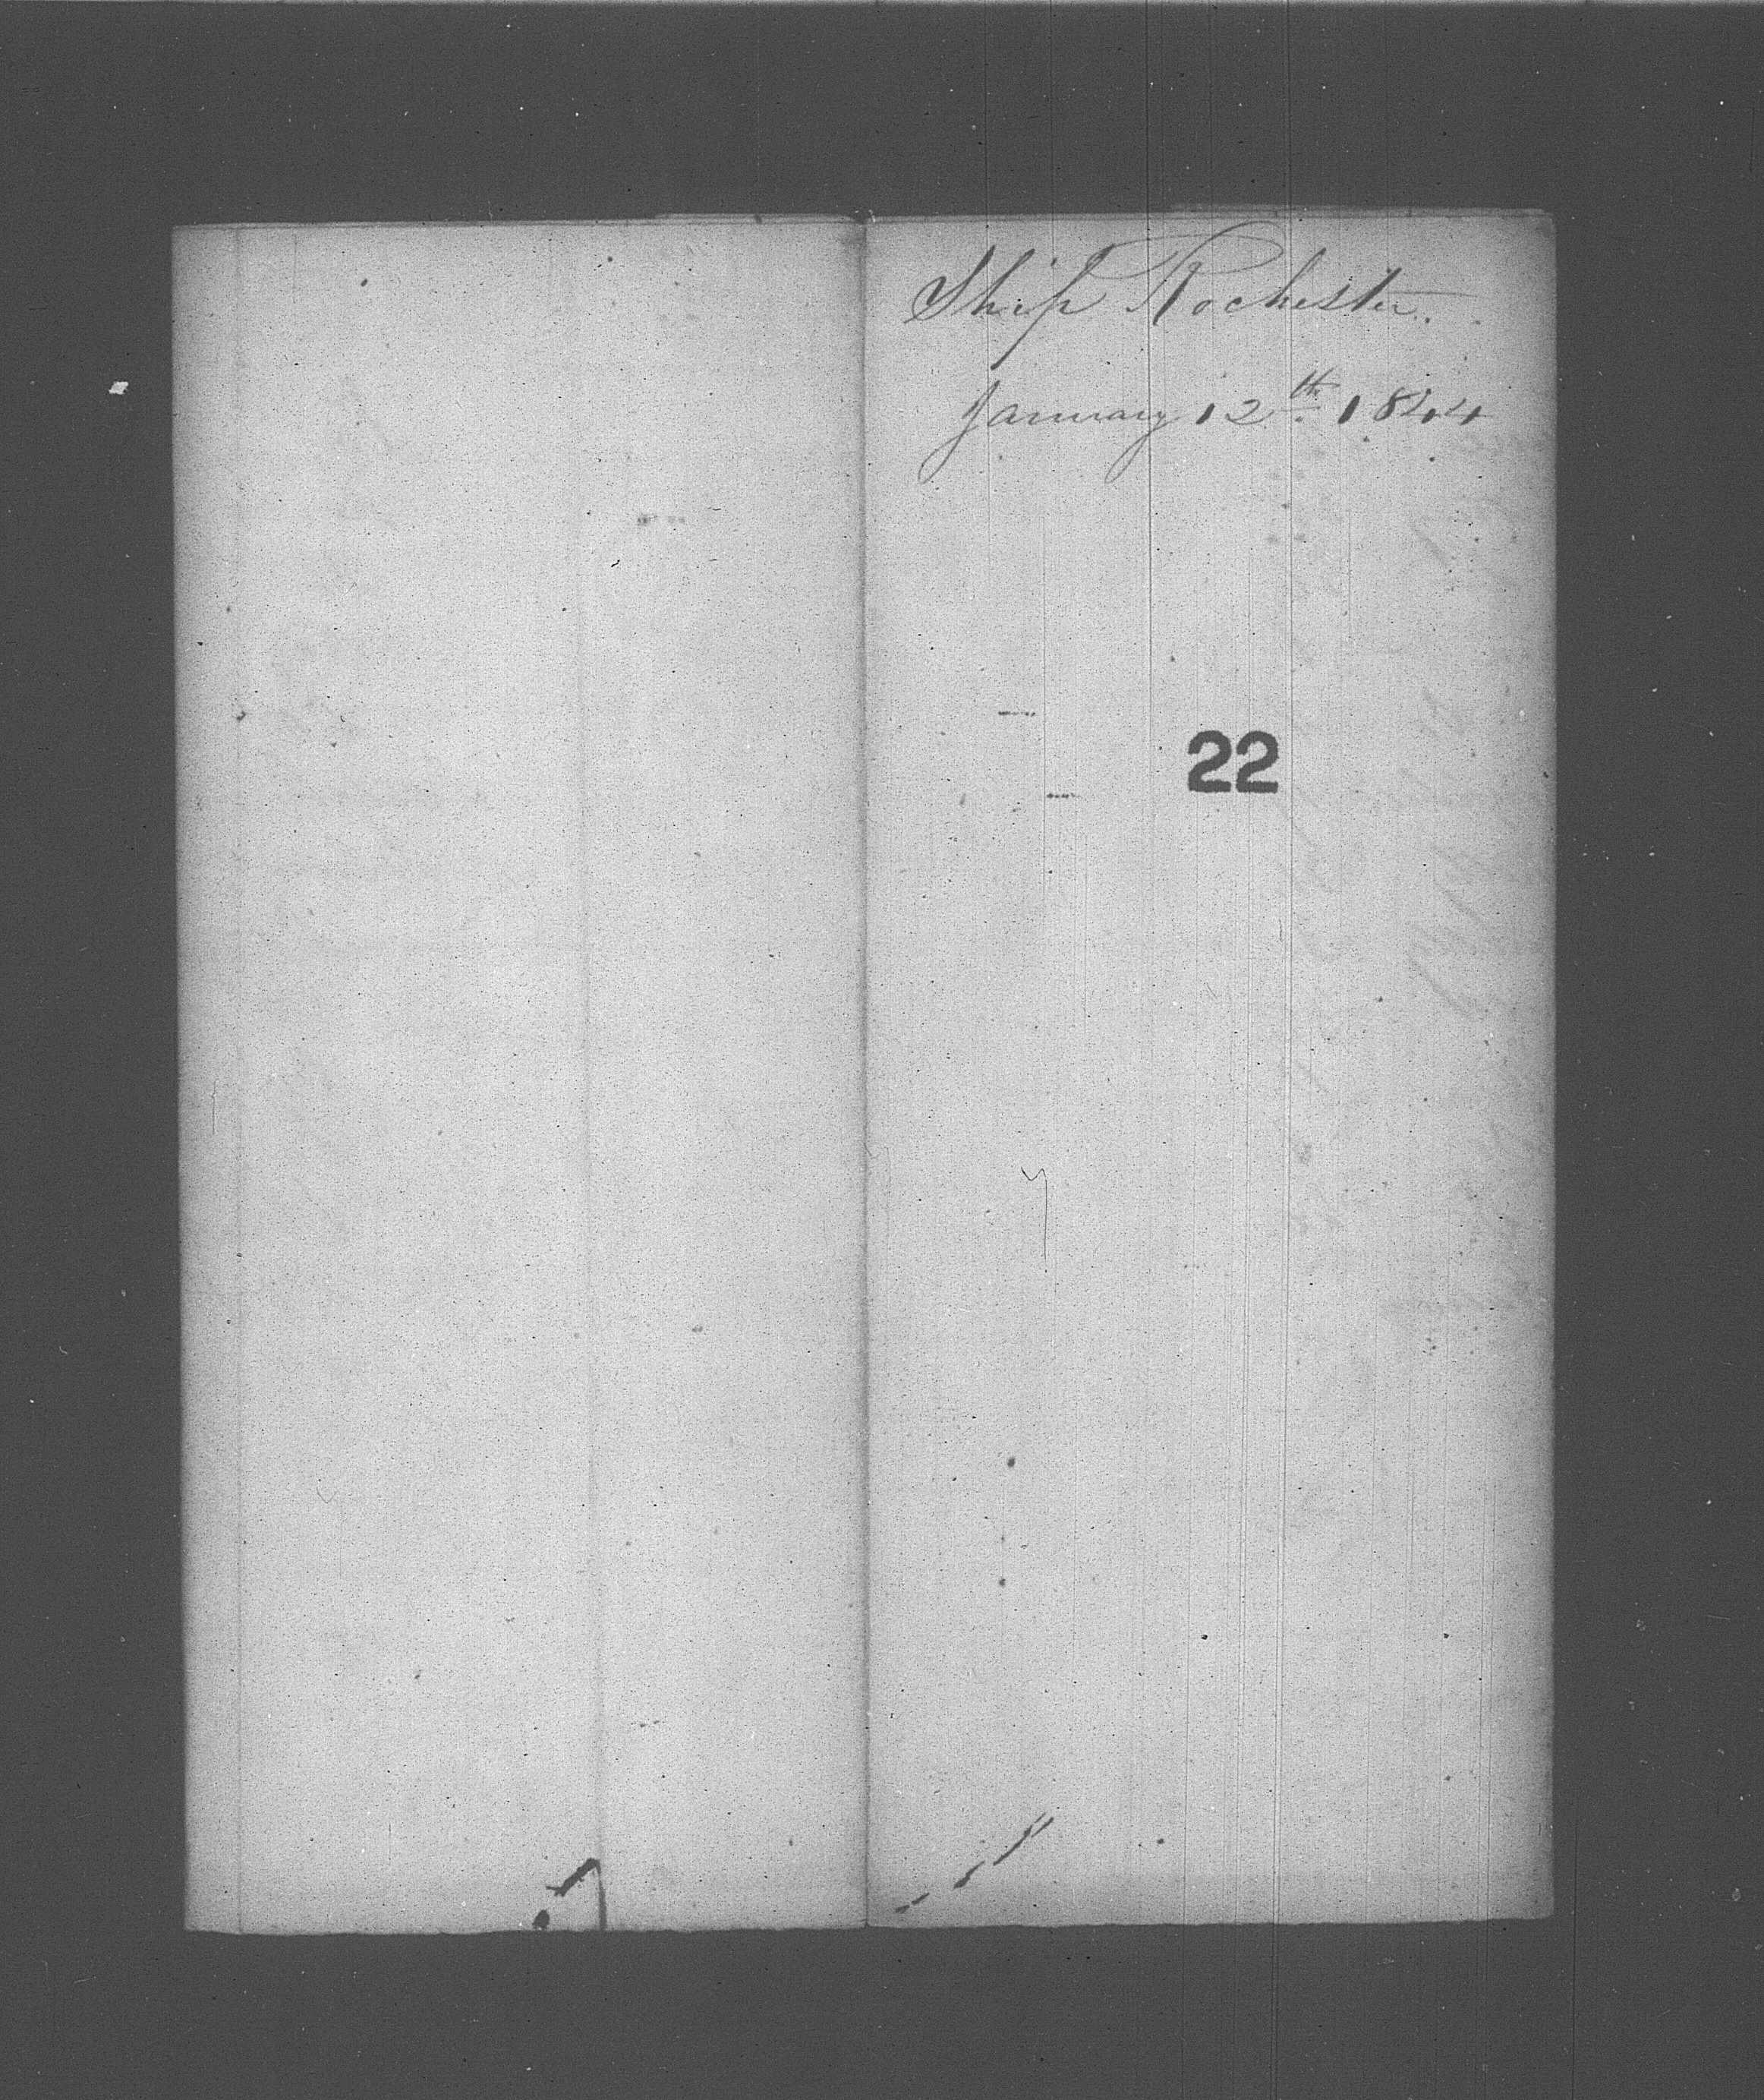 Ship Rochester.
January 12th. 1844
22